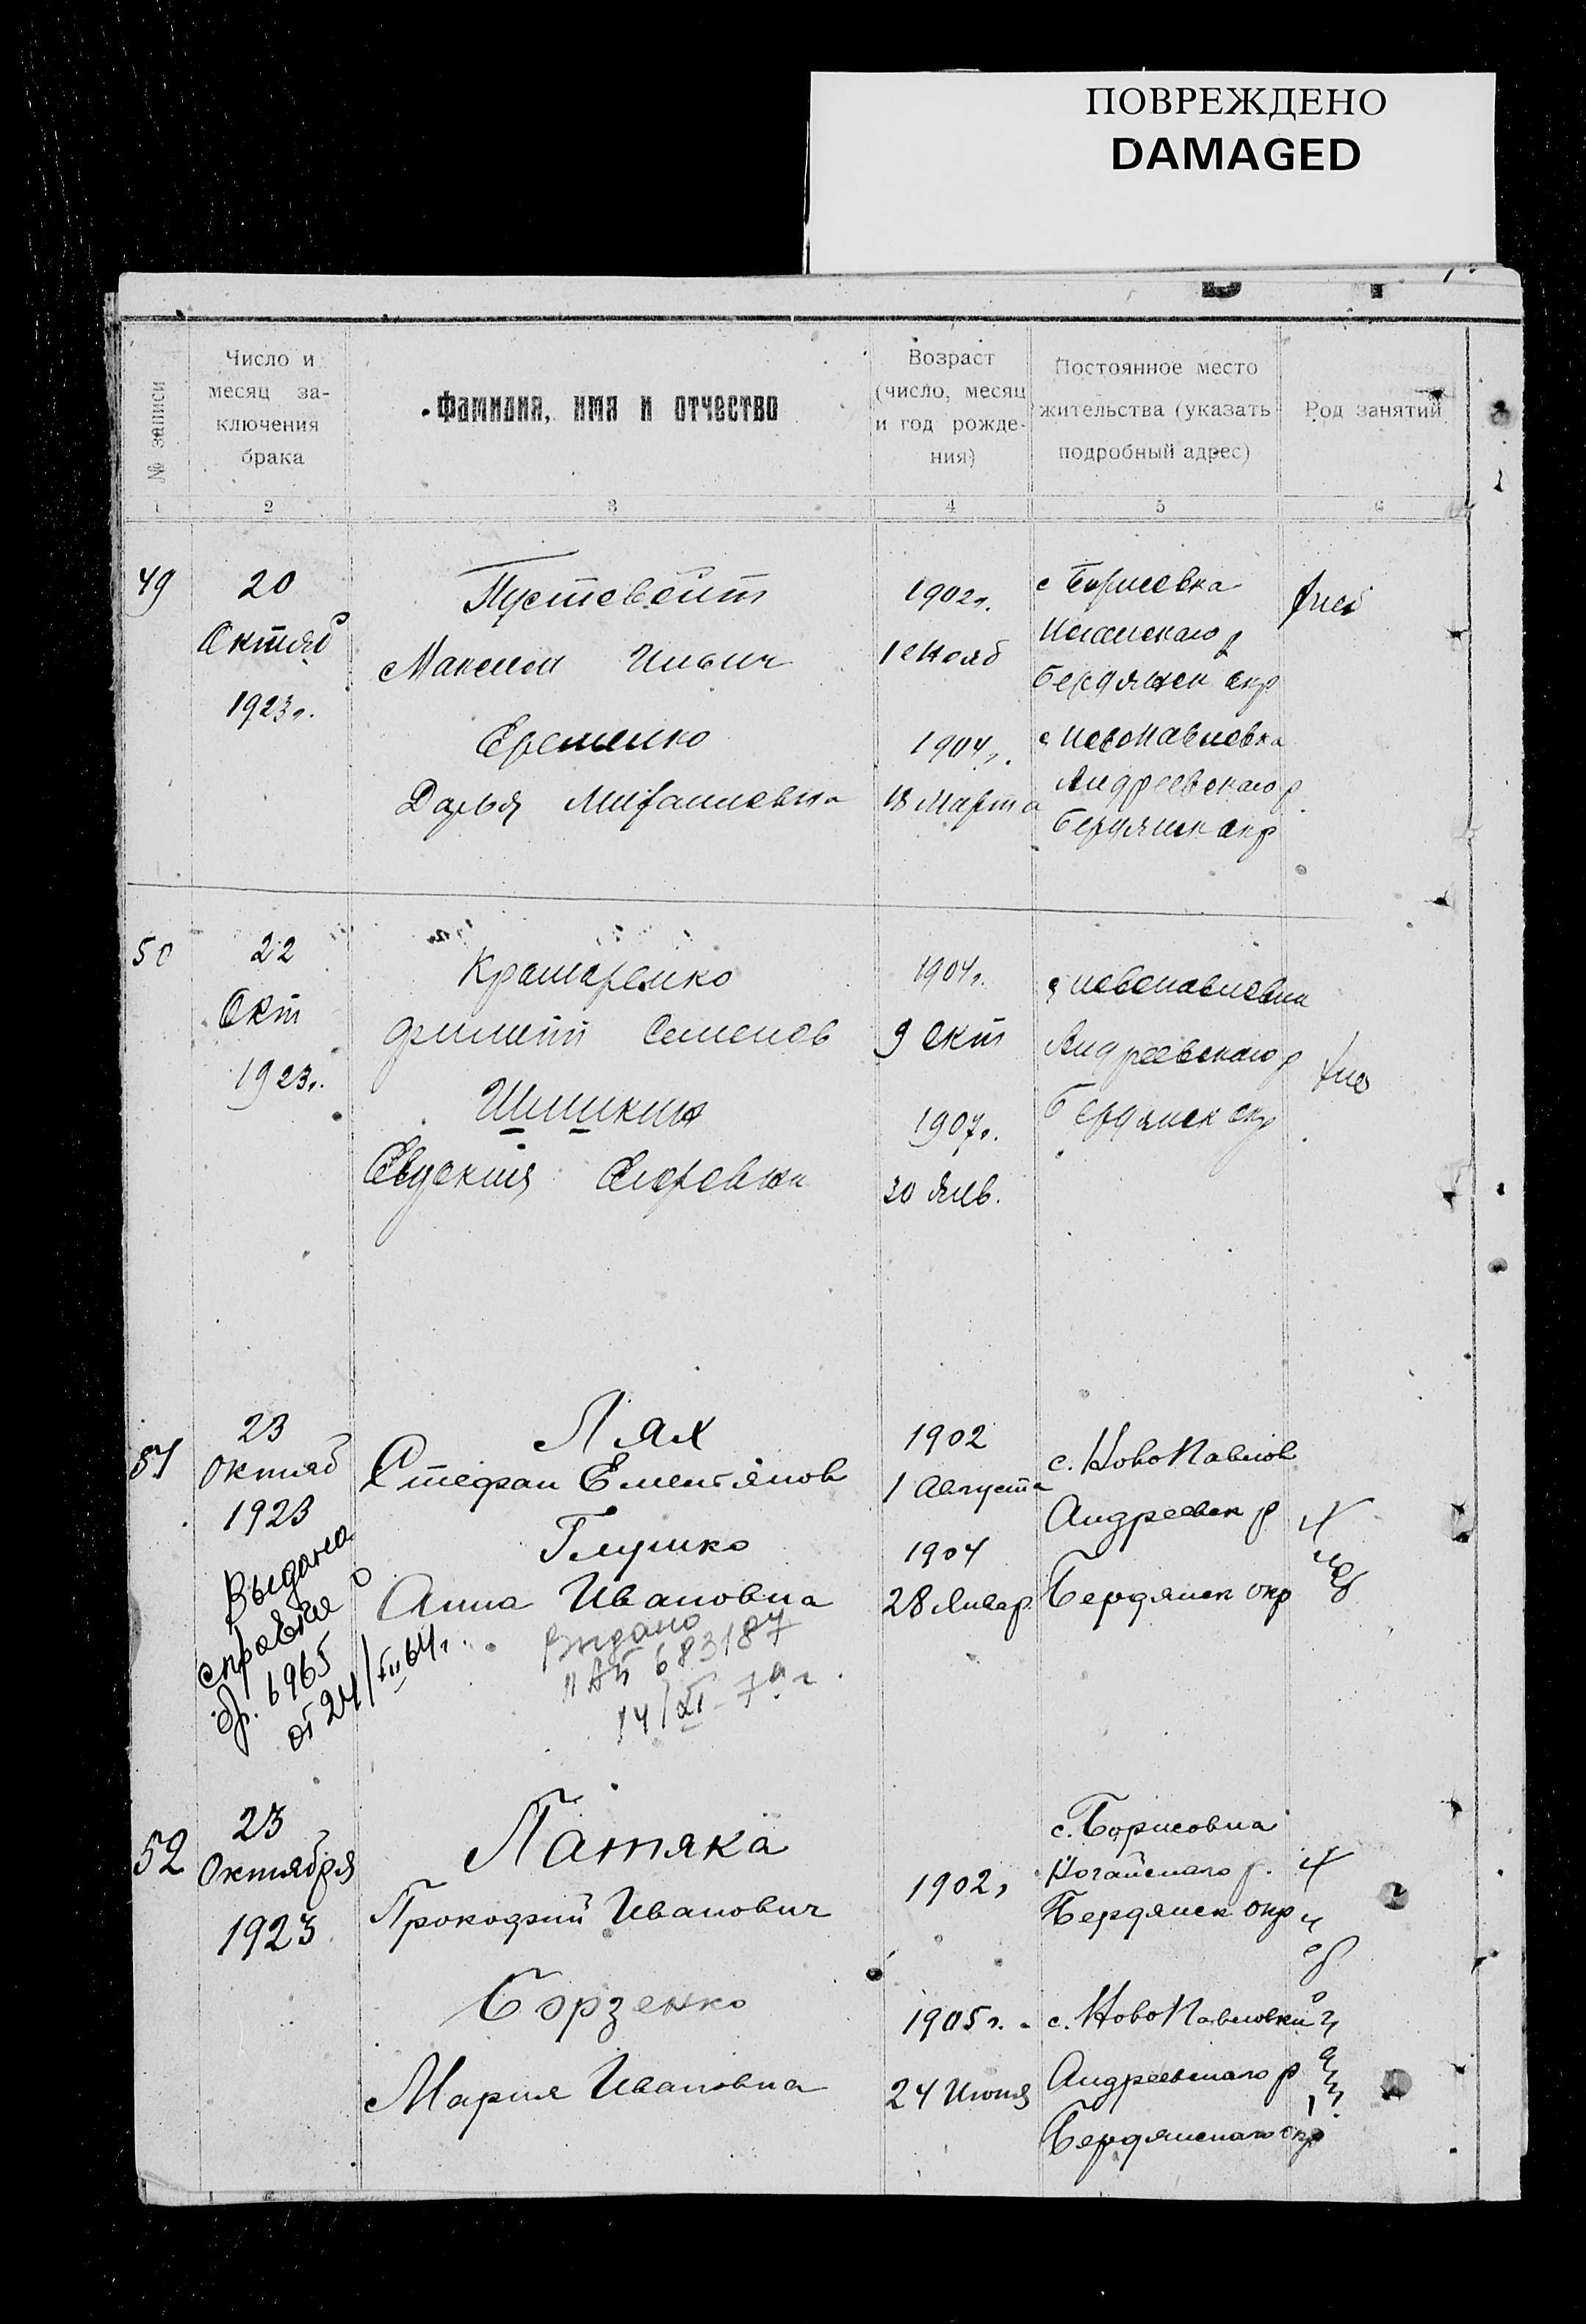 ПОВРЕЖДЕНО
DAMAGED
№ записи
Число и месяц за-ключения брака
Фамилия, имя и отчество
Возраст (число, месяц и год рожде-ния)
Постоянное место жительства (указать подробный адрес)
Род занятий
1 2 3 4 5 6
49
20
Октяб
1923г.
Пустовойт
Максим Ильич
Еременко
Дарья Михайловна
1902г.
1904г.
18 Марта
с Борисовка
Бердянск окр
с Новопавловка
Андреевского р
Бердянск окр
хлеб
50
22
Окт
1923г.
Крамаренко
Филипп Семенов
Шишкин
Евдокия
1904г.
9 Окт
1907г.
30 Янв.
с Новопавловки
Андреевского р
Бердянск окр
51
23
Октяб
1923
Лях
Стефан Емельянов
Глушко
Анна Ивановна
1902
1 Августа
1904
28 Январ.
с. НовоПавлов
Андреевск р
Бердянск окр
хлеб
Выдана
справка о
бр. 6965
от 24/XII 64г.
Выдано
683187
52
23
Октября
1923
Патяка
Прокофий Иванович
Борзенко
Мария Ивановна
1902г
1905г.
24 Июня
с. Борисовка
Ногайского р.
Бердянск окр
с. НовоПавловки
Андреевского р
Бердянского окр